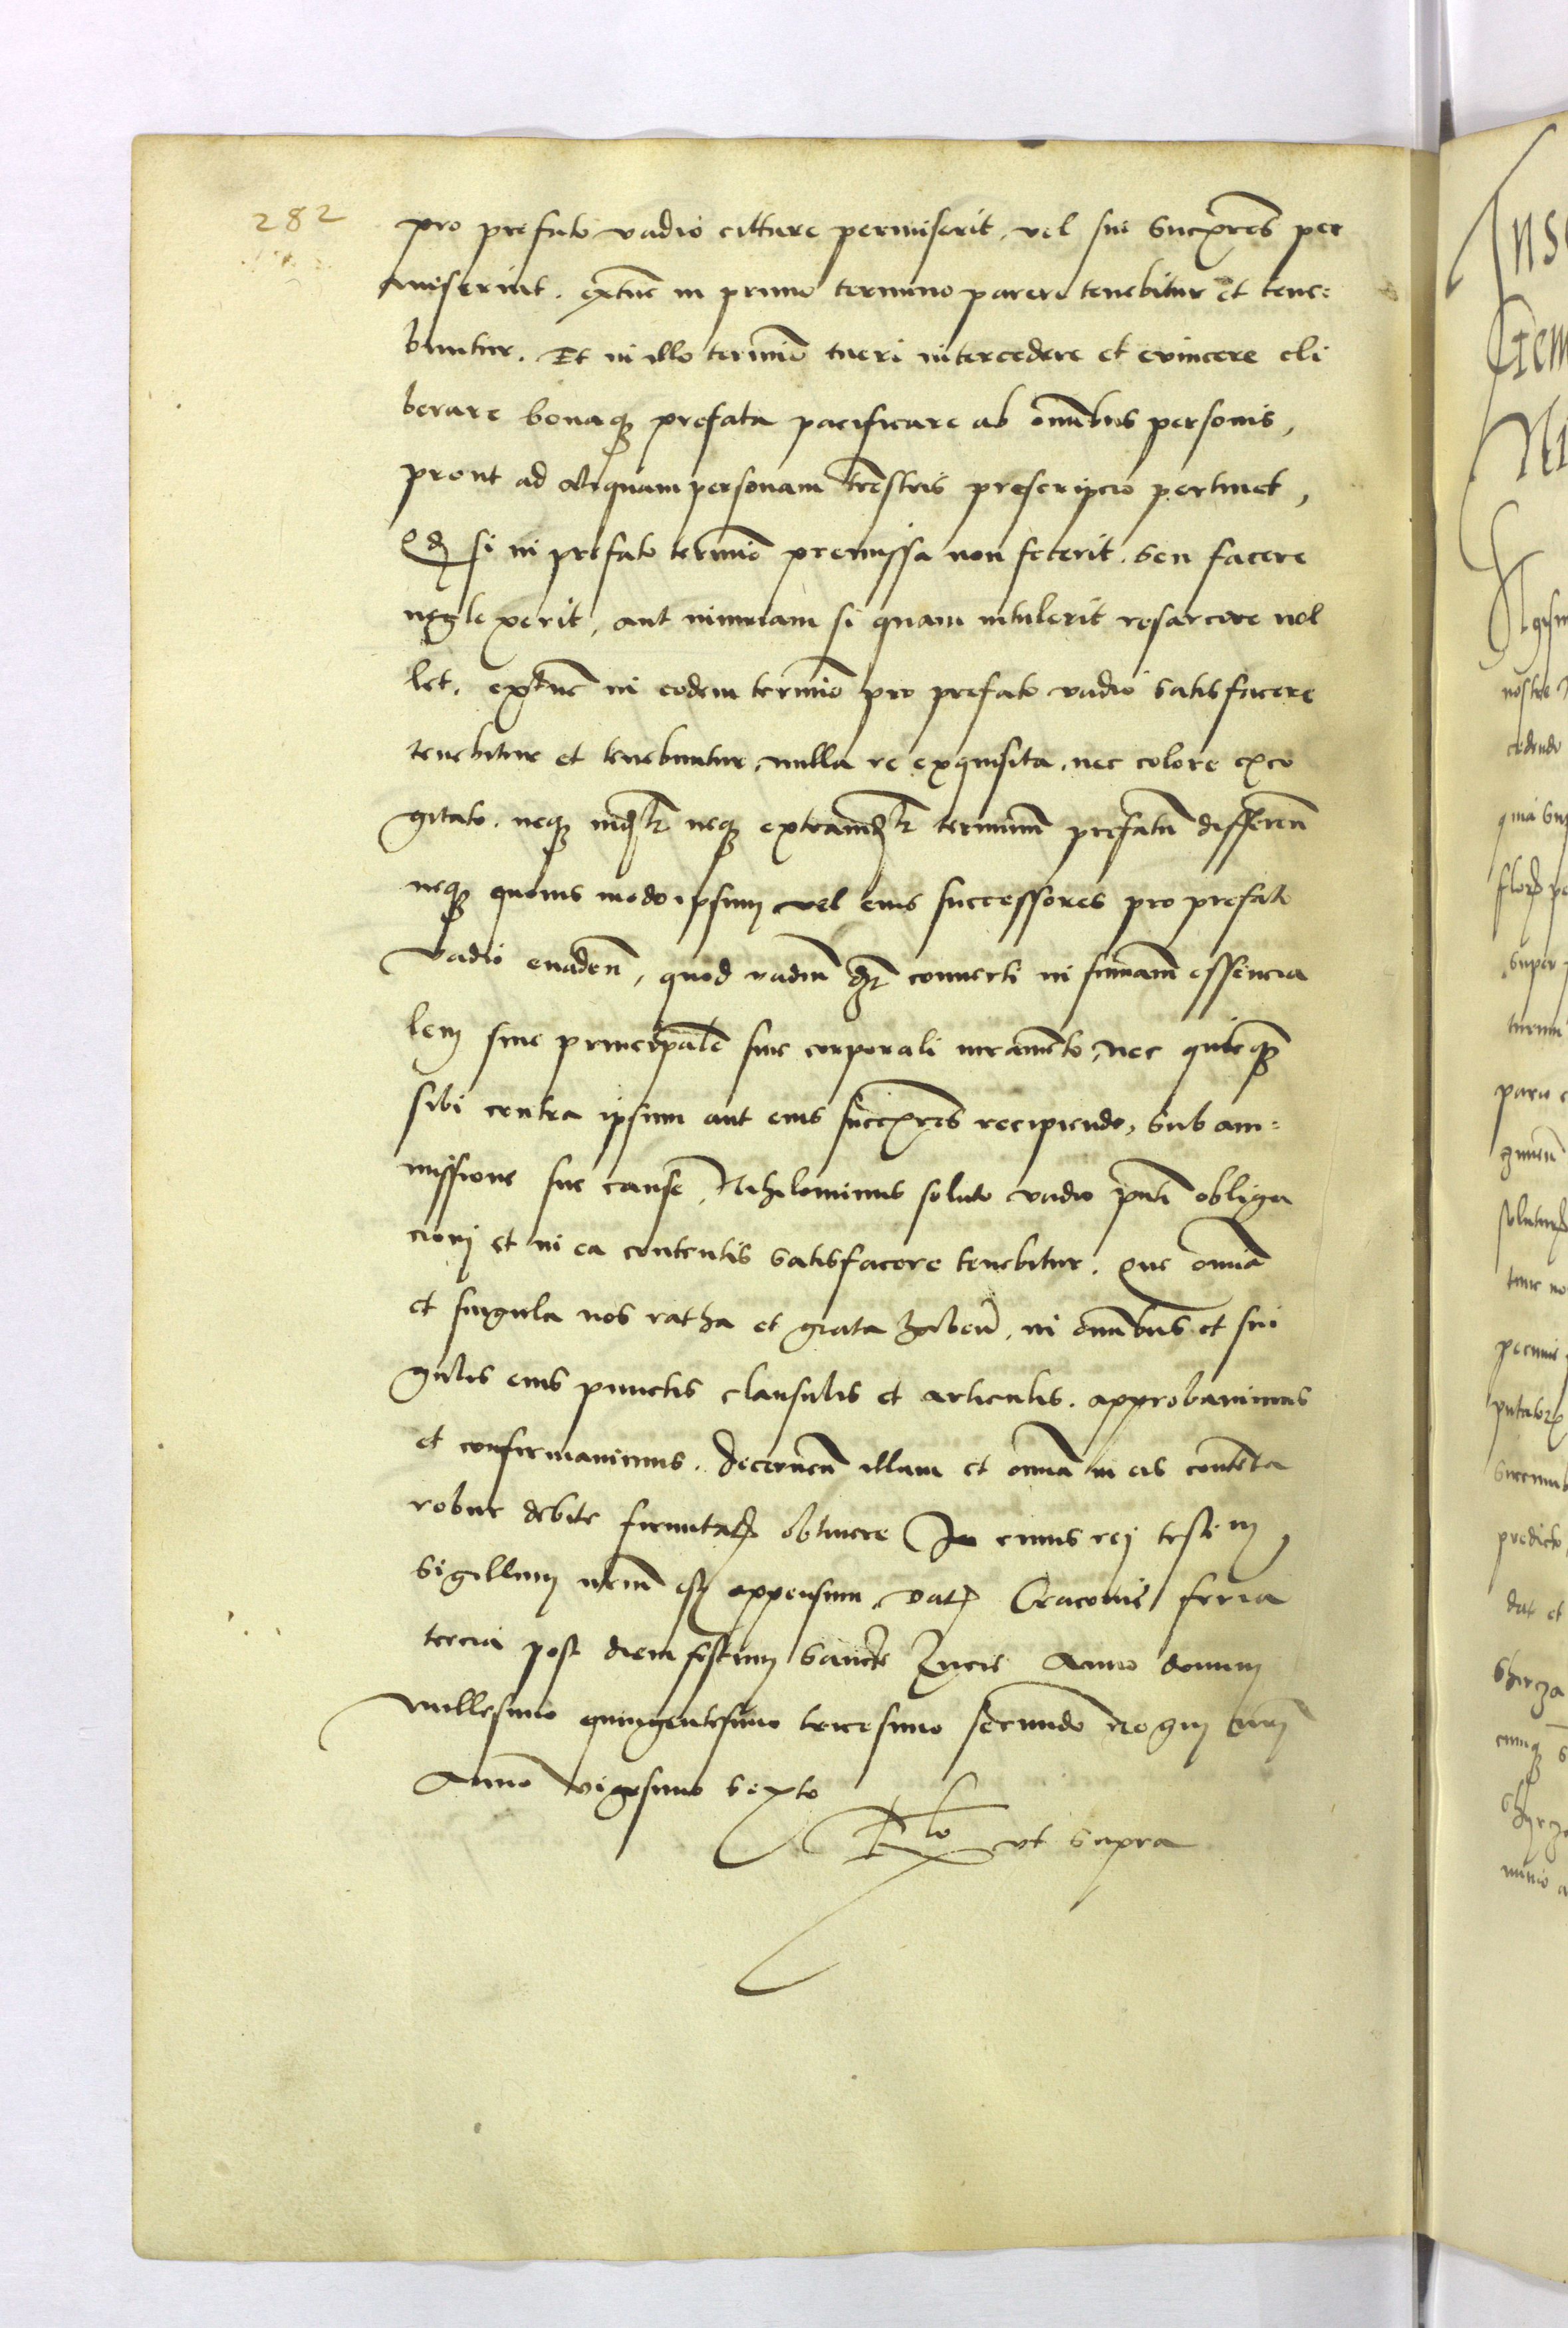 282
pro prefato vadio cittare permiserit, vel sui succ̄res per
miserint. extunc in primo termino parere tenebitur et tene=
buntur. Et in illo termīo tueri intercedere et evincere eli
berare bonaqꝫ prefata pacificare ab om̄ibus personis,
prout ad aliquam personam tr̄estris prescripcio pertinet,
Qd si in prefato termīo premissa non fecerit. seu facere
neglexerit, aut iniuriam si quam intulerit resarcere nol
let. extunc in eodem termīo pro prefato vadio satisfacere
tenebitur et tenebuntur, nulla re exquisita, nec colore exco
gitato. neqꝫ neqꝫ terminū prefatū differen̄
neqꝫ quovis modo ipsum vel eius successores pro prefato
vadio evaden̄, quod vadiū converti in sum̄am essencia
lem sive principalē sine corporali iuramēto, nec quicqꝫ
sibi contra ipsum aut eius succ̄res recipiendo, sub am=
missione sue cause, Nihilominus soluto vadio pn̄ti obliga
cioni et in ea contentis satisfacere tenebitur. Que om̄ia
et singula nos ratha et grata haben̄, in om̄ibus et sin
gulis eius punctis clausulis et articulis. approbavimus
et confirmavimus. decernen̄ illam et om̄ia in eis contēta
robur debite firmitatꝭ obtinere In cuius rej testim̄
sigillum nr̄um est appensum. Datꝭ Cracovie feria
tercia post diem festum sancte Lucie Anno domini
millesimo quingentesimo tricesimo secundo Regni nr̄j
Anno vigesimo sexto
R̄lo ut supra